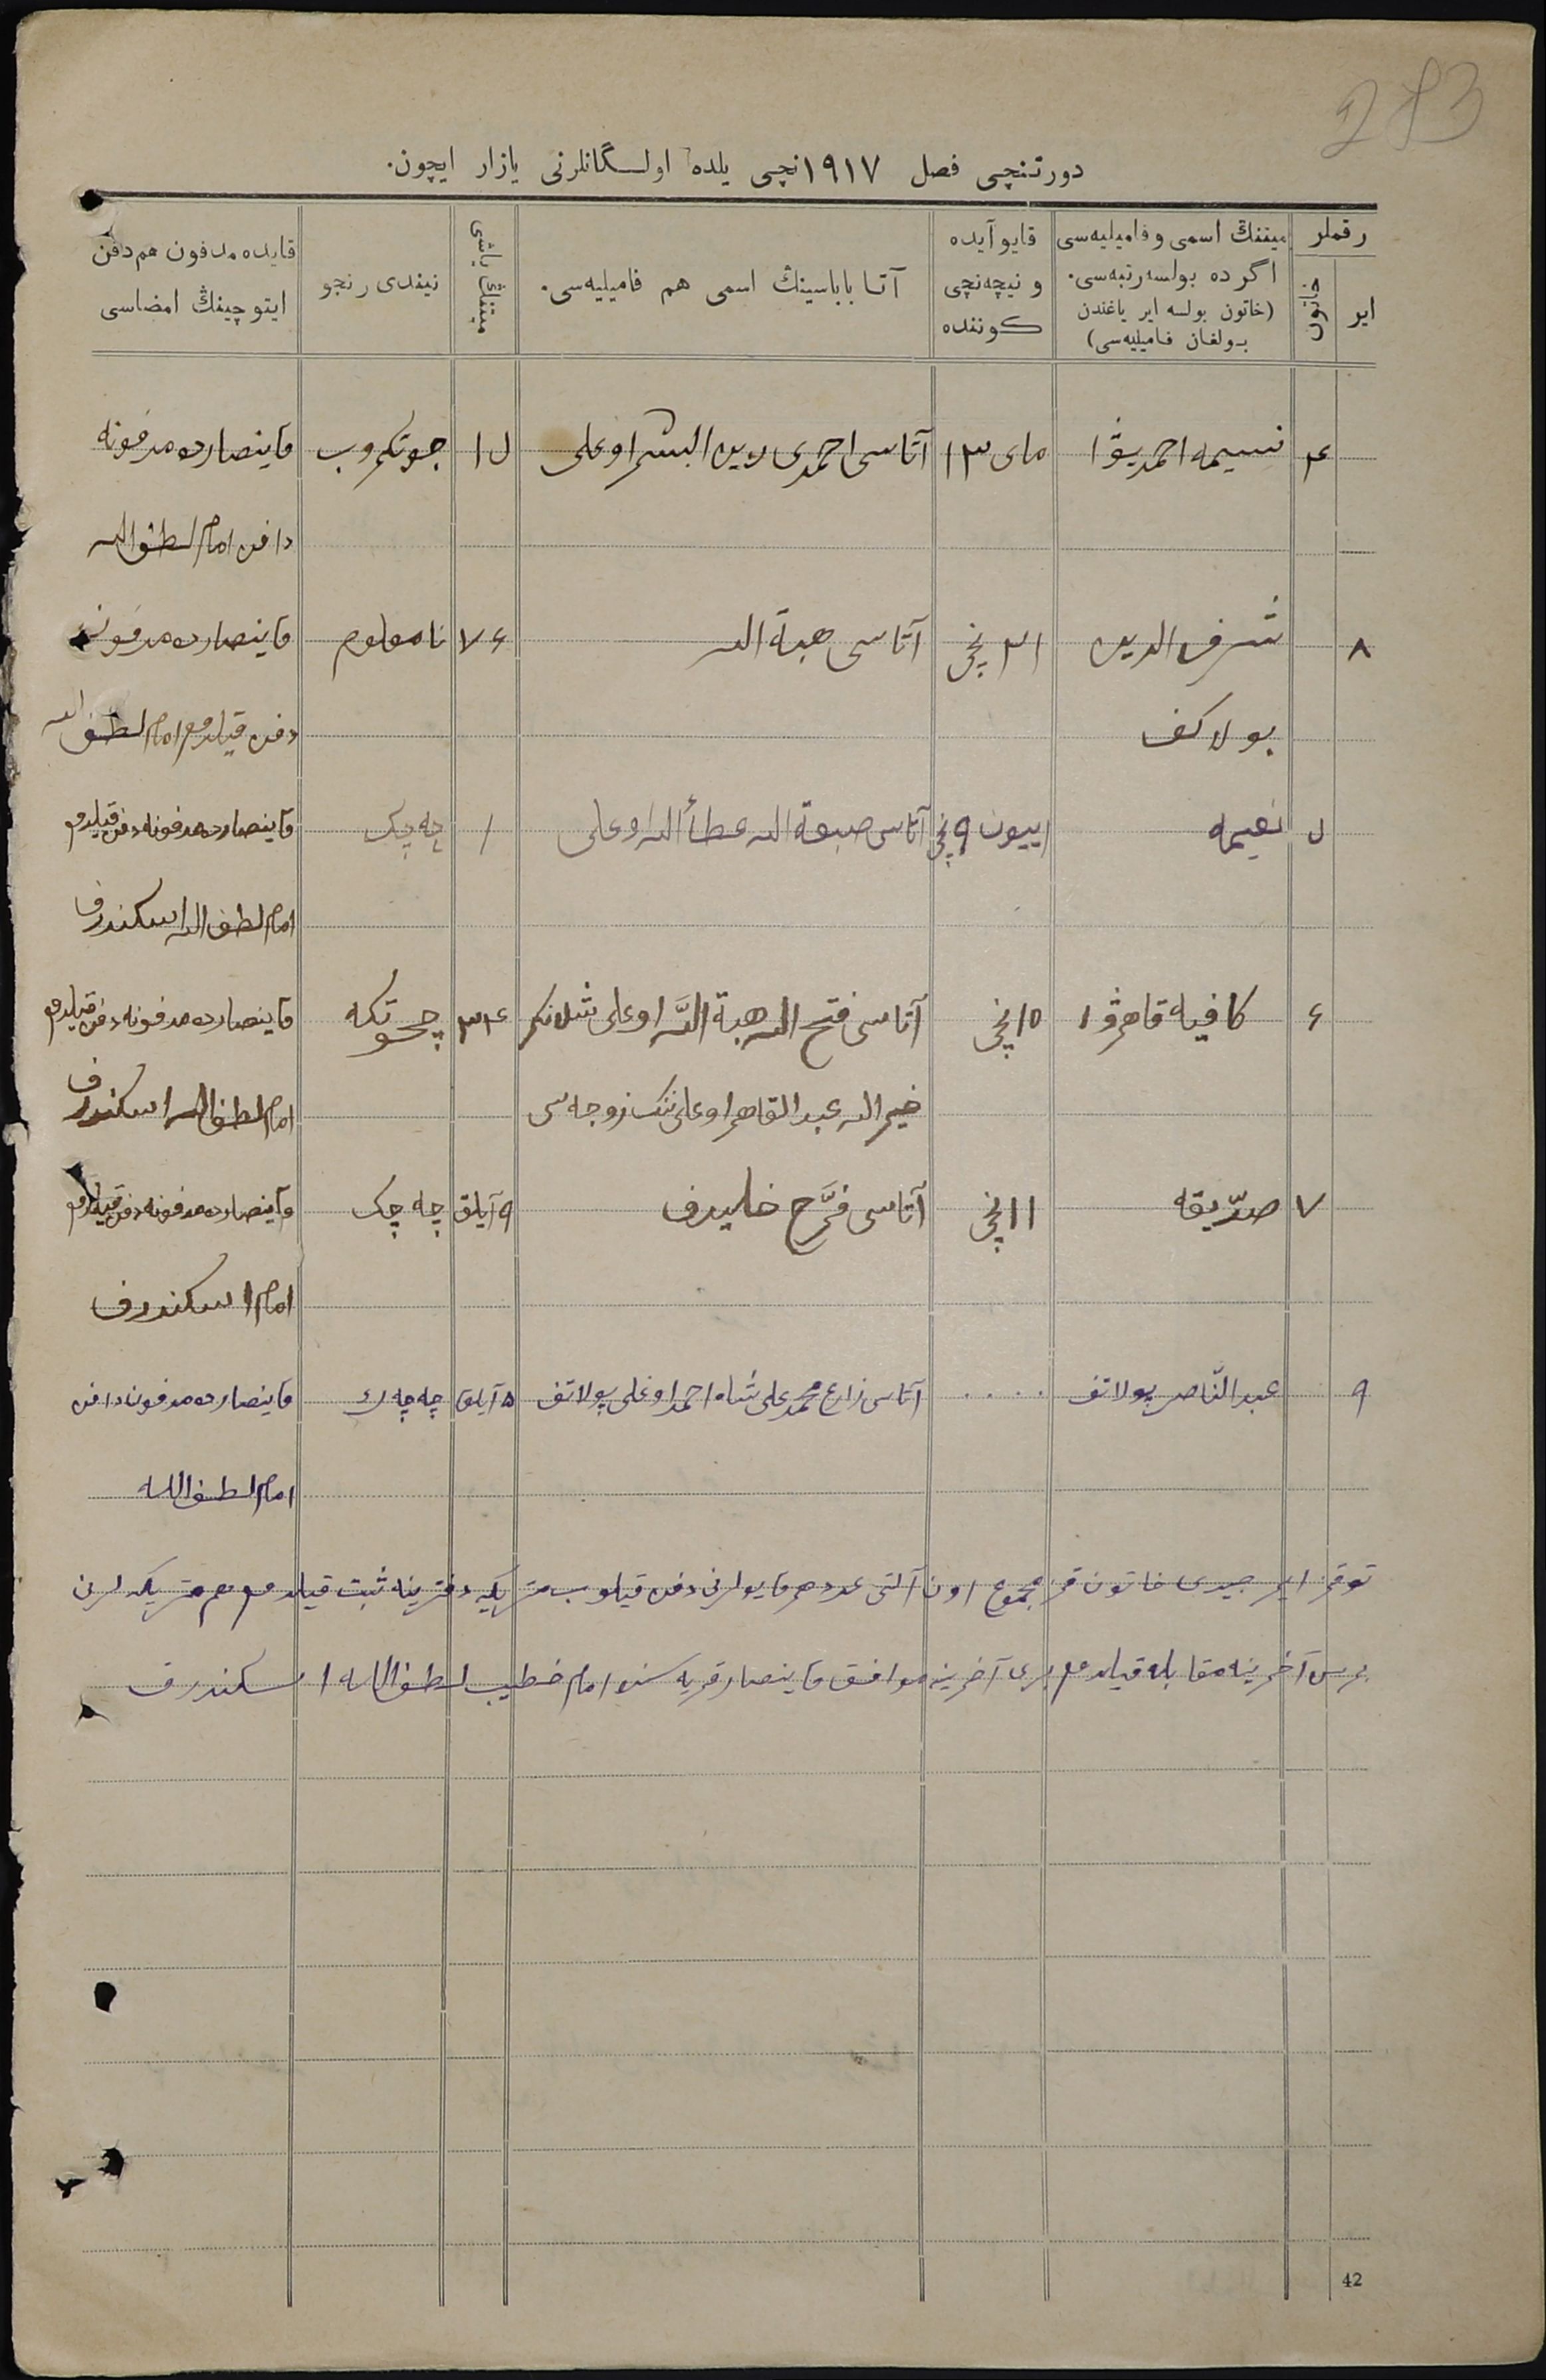 283
دورتنچی فصل ۱۹۱۷ نچی یلده اولـگانلرنی یازار ایچون.
رقملر
ایر
خاتون
میتننڭ اسمی و فامیلیه‌سی
اگر ده بولسه رتبه‌سی.
(خاتون بولسه ایر یاغندن
بـولغان فـامیلیه‌سی)
قایو آیده
و نیچه‌نچی
کـوننده
آتـا بابـاسیننڭ اسمی هم فامیلیه‌سی.
میتننڭ یاشی
نیندی رنجو
قایده مدفون هم دفن
ایتوچیننڭ امضاسی
۴ نسیمه احمدیوا مای ۱۳ آتاسی احمدی البشر اوغلی ۱۵ جوتکروب ماینصارده مدفونه
دافن امام لطف الله
۸ شرف الدین ۲۱ نچی آتاسی هبة الله ۷۶ نامعلوم ماینصارده مدفون
بولاکف دفن قیلدم امام لطف الله
۵ نعیمه اییون ۹ نچی آتاسی صبغة الله عطاء الله اوغلی ۱ چه چک ماینصارده مدفونه دفن قیلدم
امام لطف الله اسکندرف
۶ کافیه قاهروا ۱۵ نچی آتاسی فتح الله هبة الله اوغلی ۳۴ ماینصارده مدفونه دفن قیلدم
خیر الله عبد القاهر اوغلی ننک زوجه سی امام لطف الله اسکندرف
۷ صدّیقه ۱۱ نچی آتاسی فرّح خلیلف ۹ آیلق چه چک ماینصارده مدفونه دفن قیلدم
امام اسکندرف
۹ عبد النّاصر پولاتف . . . . آتاسی زارع محمد علی شاه احمد اوغلی پولاتف ۵ آیلق چه چک ماینصارده مدفون دافن
امام لطف الله
توقز ایر جیدی خاتون مجموع اون آلتی عدد قایولرنی دفن قیلوب متریکه دفترینه ثبت قیلدم هم متریکه لرنی
بری آخرینه مقابله قیلدم بری آخرینه موافق ماینصار قریه سی امام خطیب لطف الله اسکندرف
42